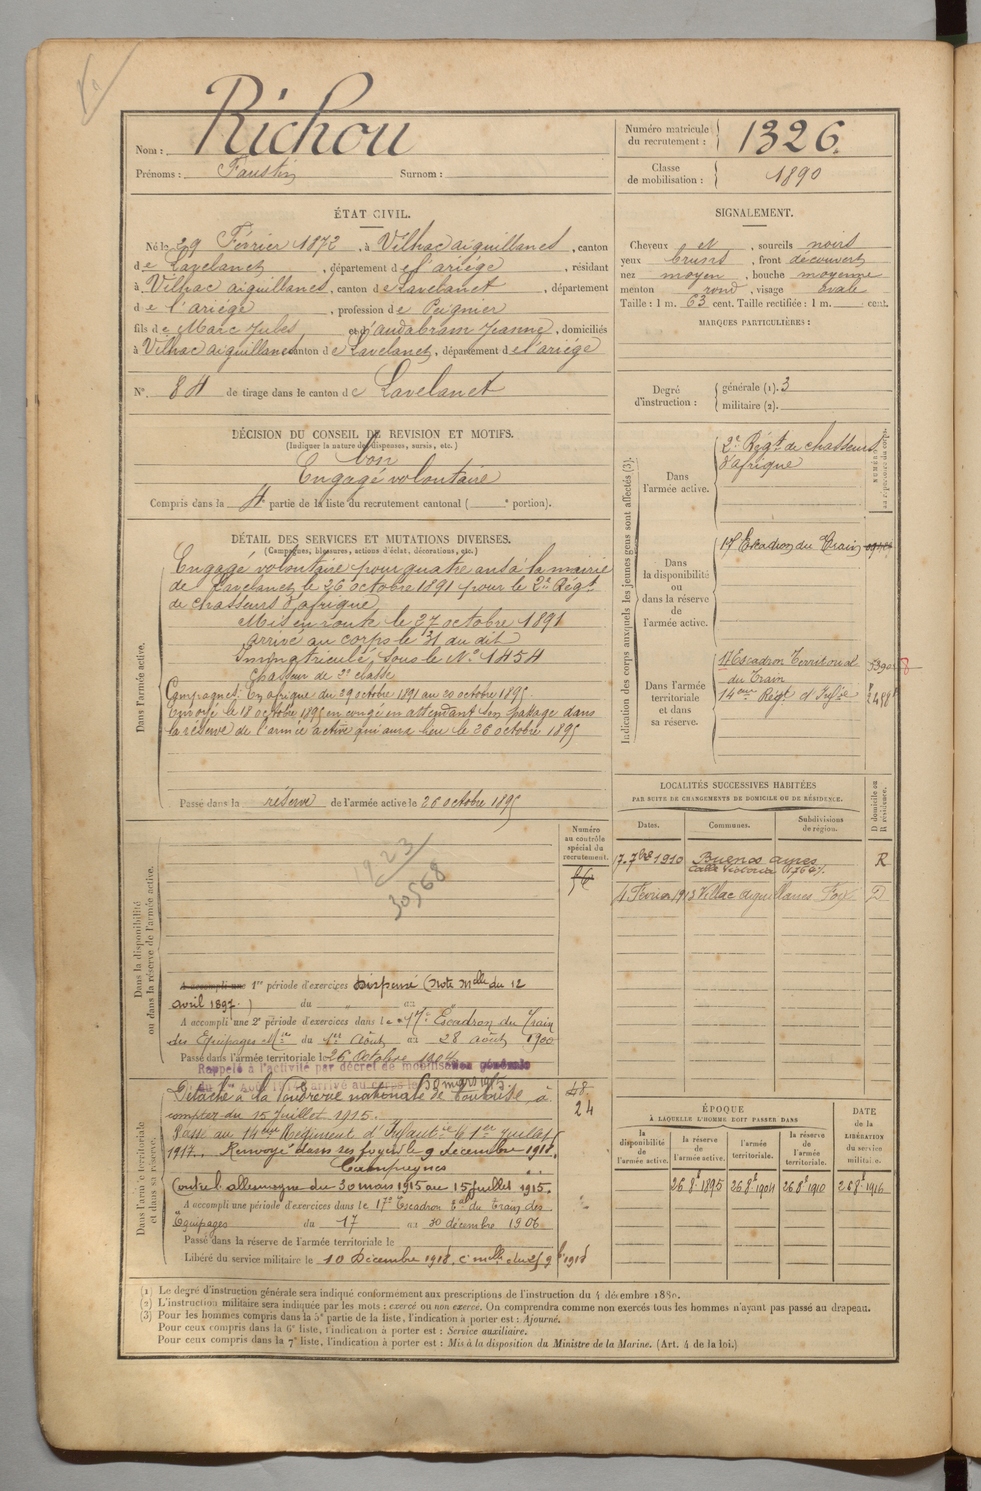 Nom : Richou
Prénoms : Faustin Surnom :
Numéro matricule du recrutement : 1326.
Classe de mobilisation : 1890
ÉTAT CIVIL.
Né le 29 Février 1872, à Vilhac aiguillanes, canton
de Lavelanet, département de l'ariége, résidant
à Vilhac aiguillanes, canton de Lavelanet, département
de l'ariége, profession de Peignier
fils de Marc Jules et d'audabram Jeanne, domiciliés
à Vilhac aiguillanes canton de Lavelanet, département de l'ariége
N° 84 de tirage dans le canton de Lavelanet
SIGNALEMENT.
Cheveux et, sourcils noirs
yeux bruns, front découvert
nez moyen, bouche moyenne
menton rond, visage ovale
Taille : 1 m. 63 cent. Taille rectifiée : 1 m. cent.
MARQUES PARTICULIÈRES :
Degré d'instruction : générale (1). 3
militaire (2).
DÉCISION DU CONSEIL DE REVISION ET MOTIFS.
(Indiquer la nature des dispenses, sursis, etc.)
bon
Engagé volontaire
Compris dans la 4 partie de la liste du recrutement cantonal ( e portion).
DÉTAIL DES SERVICES ET MUTATIONS DIVERSES.
(Campagnes, blessures, actions d'éclat, décorations, etc.)
Dans l'armée active.
Engagé volontaire pour quatre ans à la mairie
de Lavelanet le 26 octobre 1891 pour le 2e Régt
de chasseurs d'afrique
Mis en route le 27 octobre 1891
arrivé au corps le 31 du dit
Immatriculé sous le No 1454
Chasseur de 2e classe
Campagnes : En afrique du 29 octobre 1891 au 20 octobre 1895.
Envoyé le 18 octobre 1895 en congé en attendant son passage dans
la réserve de l'armée active qui aura lieu le 26 octobre 1895
Passé dans la réserve de l'armée active le 26 octobre 1895
Indication des corps auxquels les jeunes gens sont affectés (3).
NUMÉRO au répertoire du corps.
Dans l'armée active.
2e Régt de chasseurs
d'afrique
Dans la disponibilité ou dans la réserve de l'armée active.
17 Escadron du Train
Dans l'armée territoriale et dans sa réserve.
17 Escadron Territorial
du Train
14eme Régt d'Infie
LOCALITÉS SUCCESSIVES HABITÉES
PAR SUITE DE CHANGEMENTS DE DOMICILE OU DE RÉSIDENCE.
Dates. Communes. Subdivisions de région. D domicile ou R résidence.
17-7bre 1910 Buenos ayres R
Calle Victoria
4 Février 1913 Villac aiguillanes Foix D
Dans la disponibilité ou dans la réserve de l'armée active.
Numéro au contrôle spécial du recrutement.
56
1923
30568
A accompli une 1re période d'exercices Dispensé (Note Melle du 12
avril 1897.) du au
A accompli une 2e période d'exercices dans le 17e Escadron du Train
des Equipages Mres du 1er Août au 28 août 1900
Passé dans l'armée territoriale le 26 Octobre 1904
Rappelé à l'activité par décret de mobilisation générale
du 1er août 1914 arrivé au corps le 30 mars 1915
Dans l'armée territoriale et dans sa réserve.
Détaché à la Poudrerie nationale de Toulouse, à
compter du 15 juillet 1915.
48
24
Passé au 14eme Régiment d'Infanterie le 1er Juillet
1917. Renvoyé dans ses foyers le 9 décembre 1918.
Campagnes
Contre l'allemagne du 30 mars 1915 au 15 juillet 1915.
A accompli une période d'exercices dans le 17e Escadron Tal du Train des
Equipages du 17 au 30 décembre 1906
Passé dans la réserve de l'armée territoriale le
Libéré du service militaire le 10 Décembre 1918, c. melle du 25 9bre 1918
ÉPOQUE
À LAQUELLE L'HOMME DOIT PASSER DANS
DATE DE LA LIBÉRATION du service militaire.
la disponibilité de l'armée active. la réserve de l'armée active. l'armée territoriale. la réserve de l'armée territoriale.
26 8e 1895 26 8e 1904 26 8e 1910 26 8e 1916
(1) Le degré d'instruction générale sera indiqué conformément aux prescriptions de l'instruction du 4 décembre 1880.
(2) L'instruction militaire sera indiquée par les mots : exercé ou non exercé. On comprendra comme non exercés tous les hommes n'ayant pas passé au drapeau.
(3) Pour les hommes compris dans la 5e partie de la liste, l'indication à porter est : Ajourné.
Pour ceux compris dans la 6e liste, l'indication à porter est : Service auxiliaire.
Pour ceux compris dans la 7e liste, l'indication à porter est : Mis à la disposition du Ministre de la Marine. (Art. 4 de la loi.)